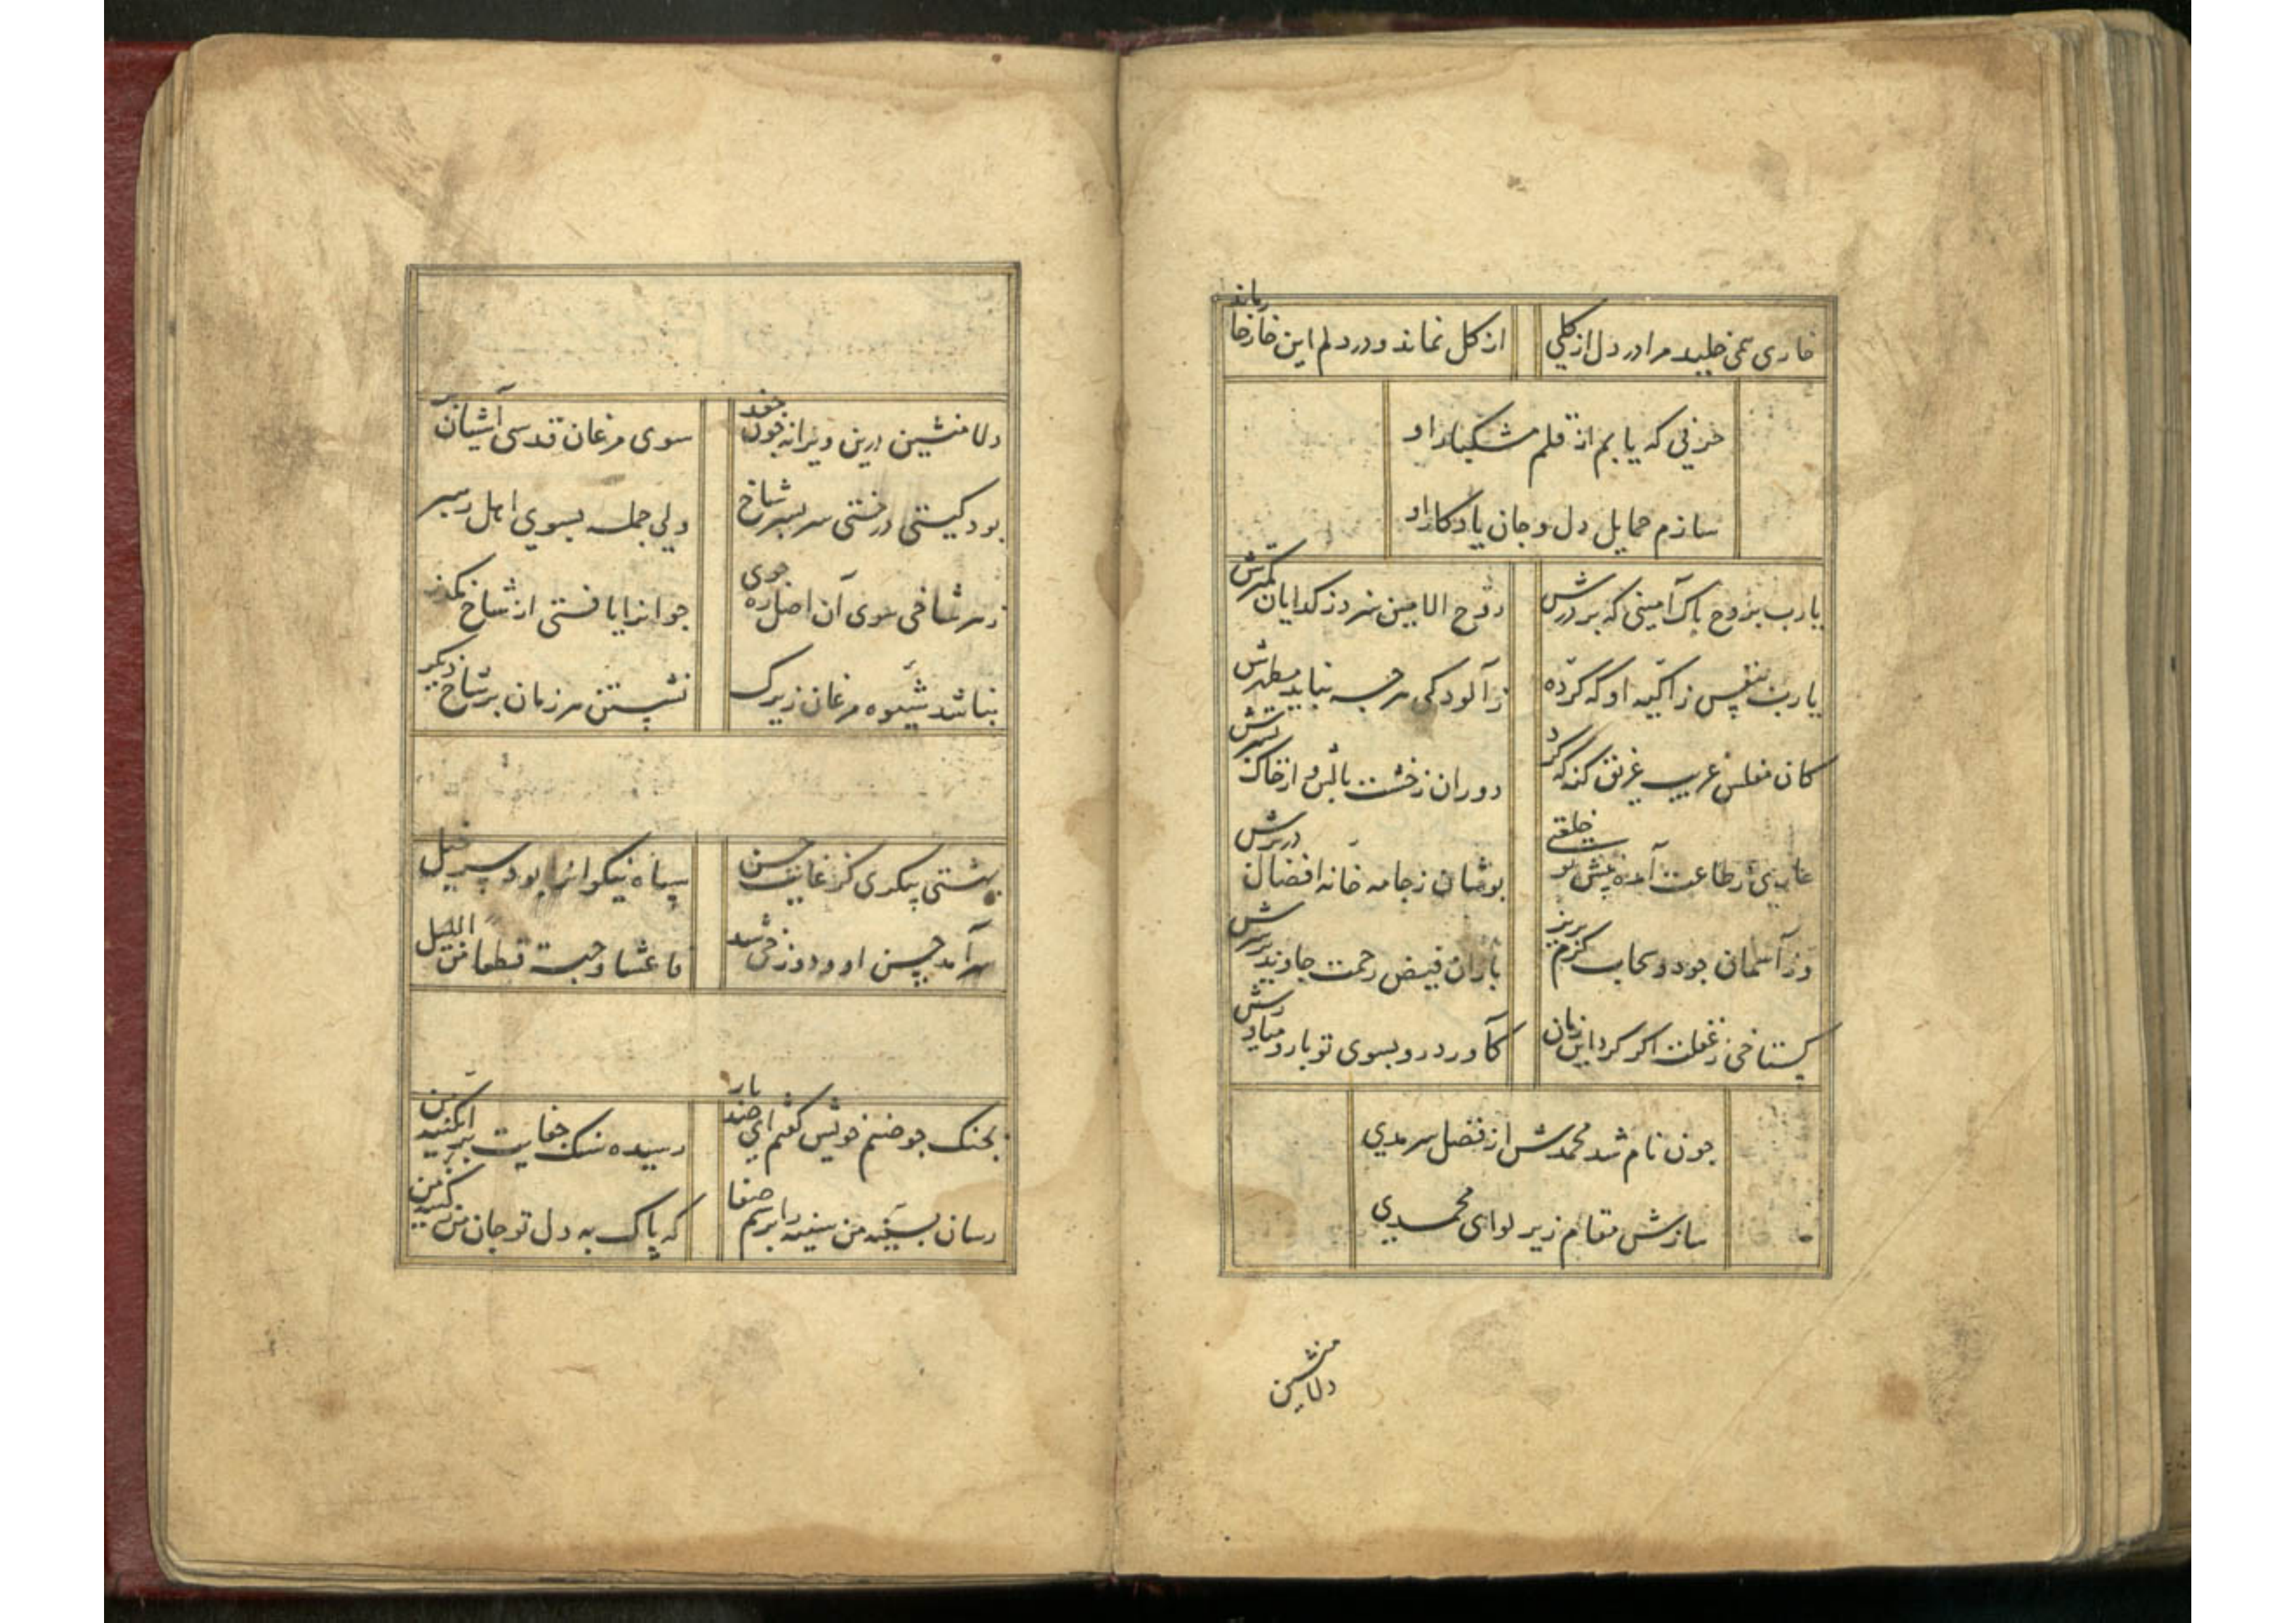 خاری همی خلید مرا در دل از کلی
از کل نماند و در دلم این خار خار ماند
حرفی که یابم از قلم مشکبار او
سازم حمایل دل و جان یادکار او
یارب بروح پاک امینی که بر درش
روح الامین نبرد ز کدایان کمترش
یارب بنفس زاکیه او که کرده
ز آلودکی هر چه نباید مطهرش
کان مفلس غریب غریق کنه که کرد
دوران ز خشت بالش و از خاک بسترش
عاری ز طاعت آمده پیش تو خلعتی
پوشان ز جامه خانه افضال در برش
وز آسمان جود و سحاب کرم بریز
باران فیض رحمت جاوید بر سرش
کستاخی ز غفلت اکر کرد این زمان
کآورد رو بسوی تو با رو میاورش
جون نام شد محمدش از فضل سرمدی
سازش مقام زیر لوای محمدی
دلا منشین
دلا منشین درین ویرانه جون جغد
سوی مرغان قدسی آشیان پر
بود کیتی درختی سر بسر شاخ
ولی جمله بسوی اصل رهبر
ز هر شاخی سوی آن اصل ره جوی
جو آنرا یافتی از شاخ بکذر
نباشد شیوه مرغان زیرک
نشستن هر زمان بر شاخ دیکر
بهشتی پیکری کز غایت حسن
سپاه نیکوانرا بود سر خیل
سر آمد حسن او و دوزخی شد
بجنک جو خصم خویش کفتم ای جند بار
رسیده سنک جفایت بر آبکینه من
رسان بسینه من سینه را برسم صفا
که پاک به دل تو جان من ز کینه من